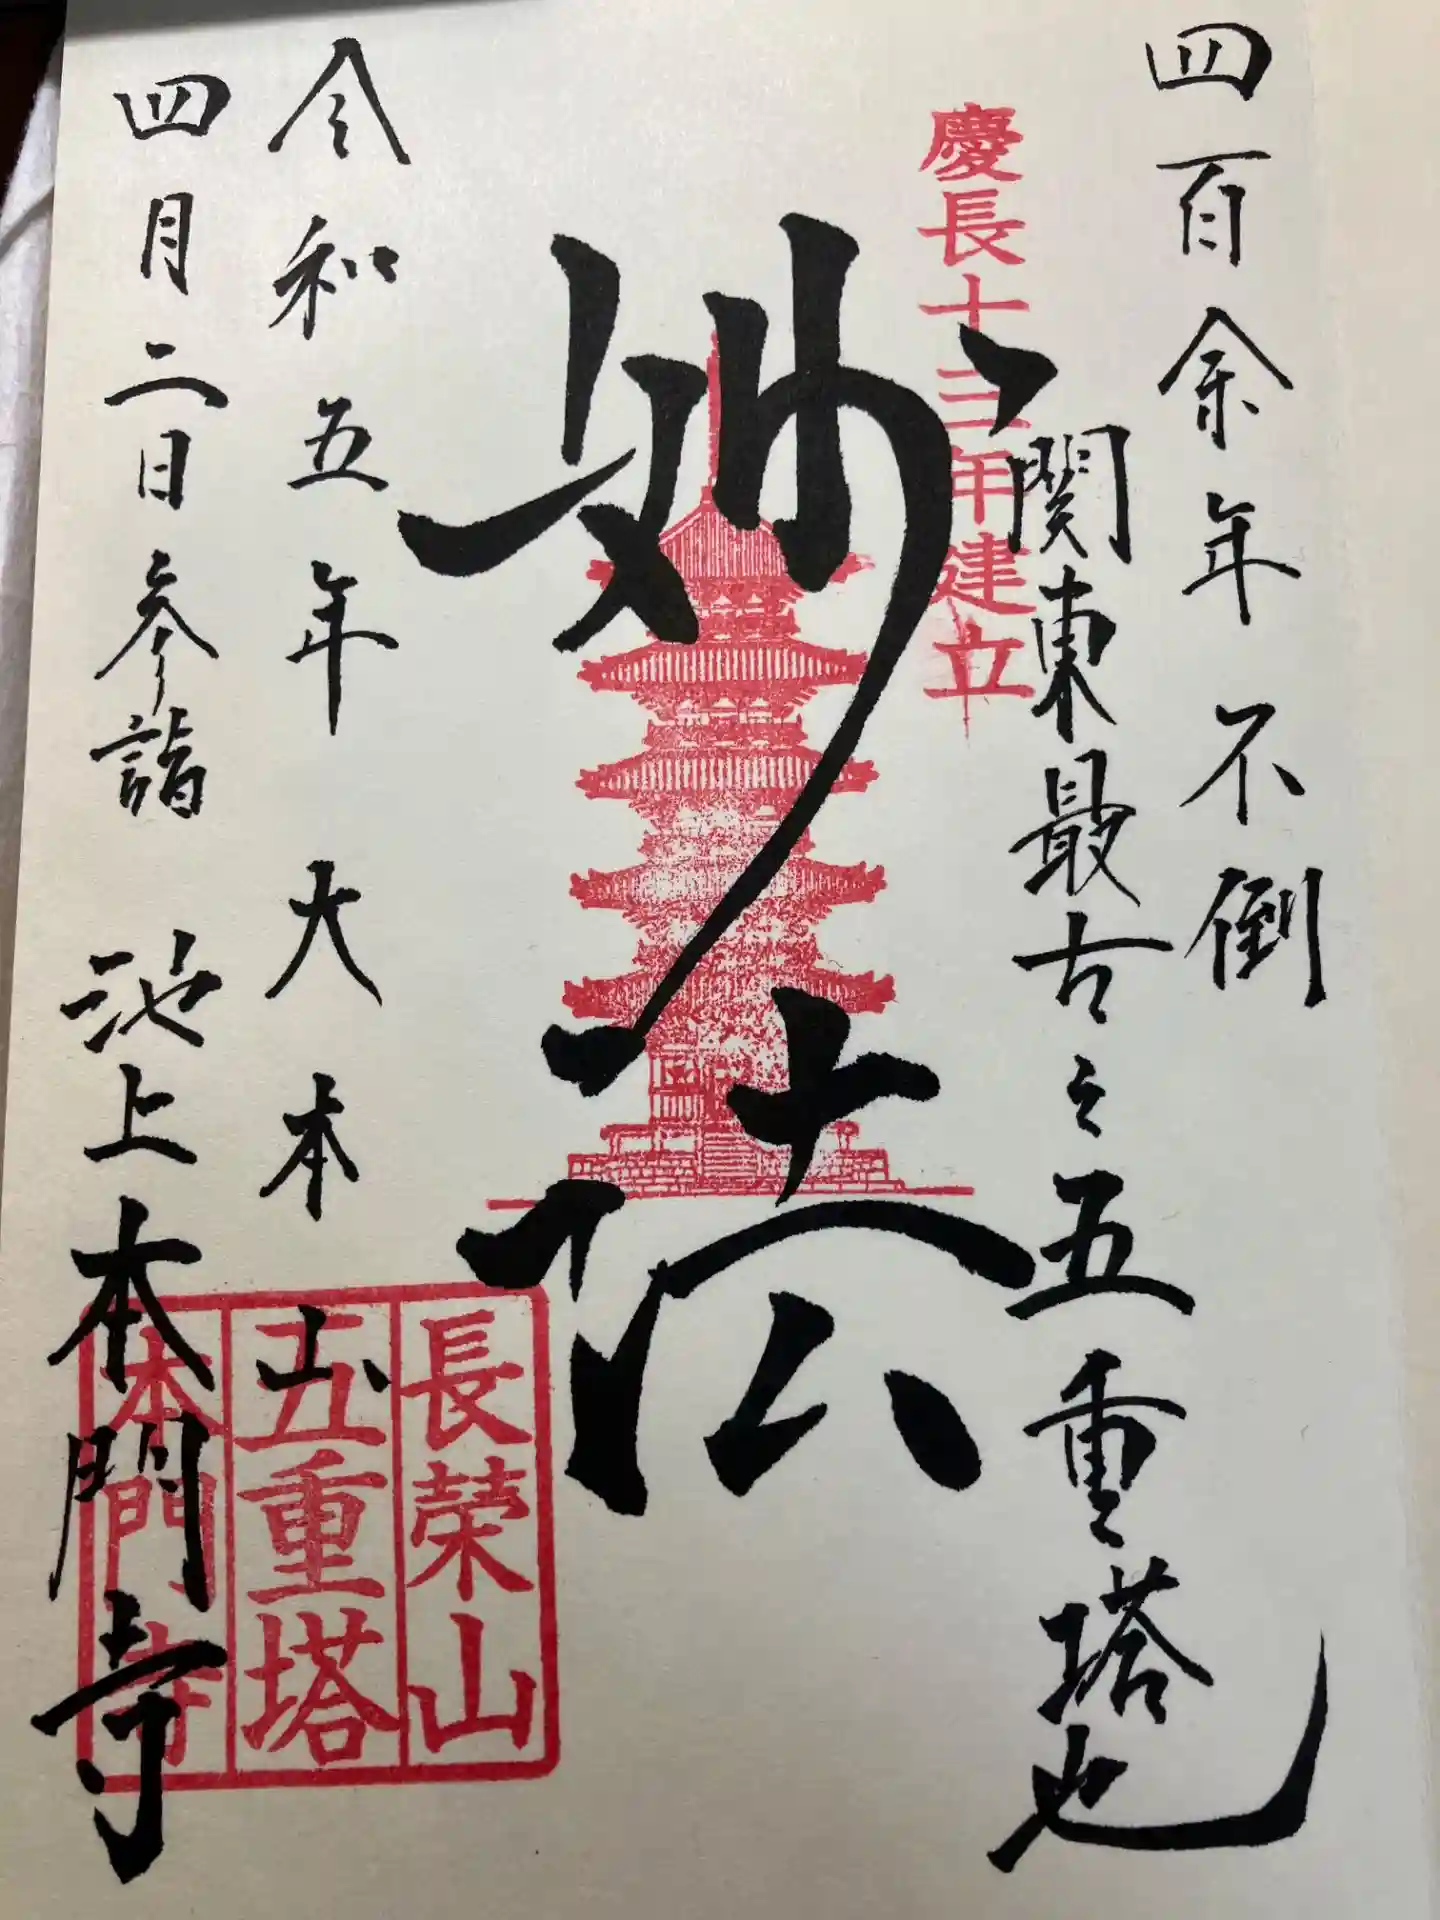 四百余年不倒
関東最古之五重塔也
慶長十三年建立
妙法
長榮山
五重塔
本門寺
令和五年 大本山
四月二日参詣 池上本門寺